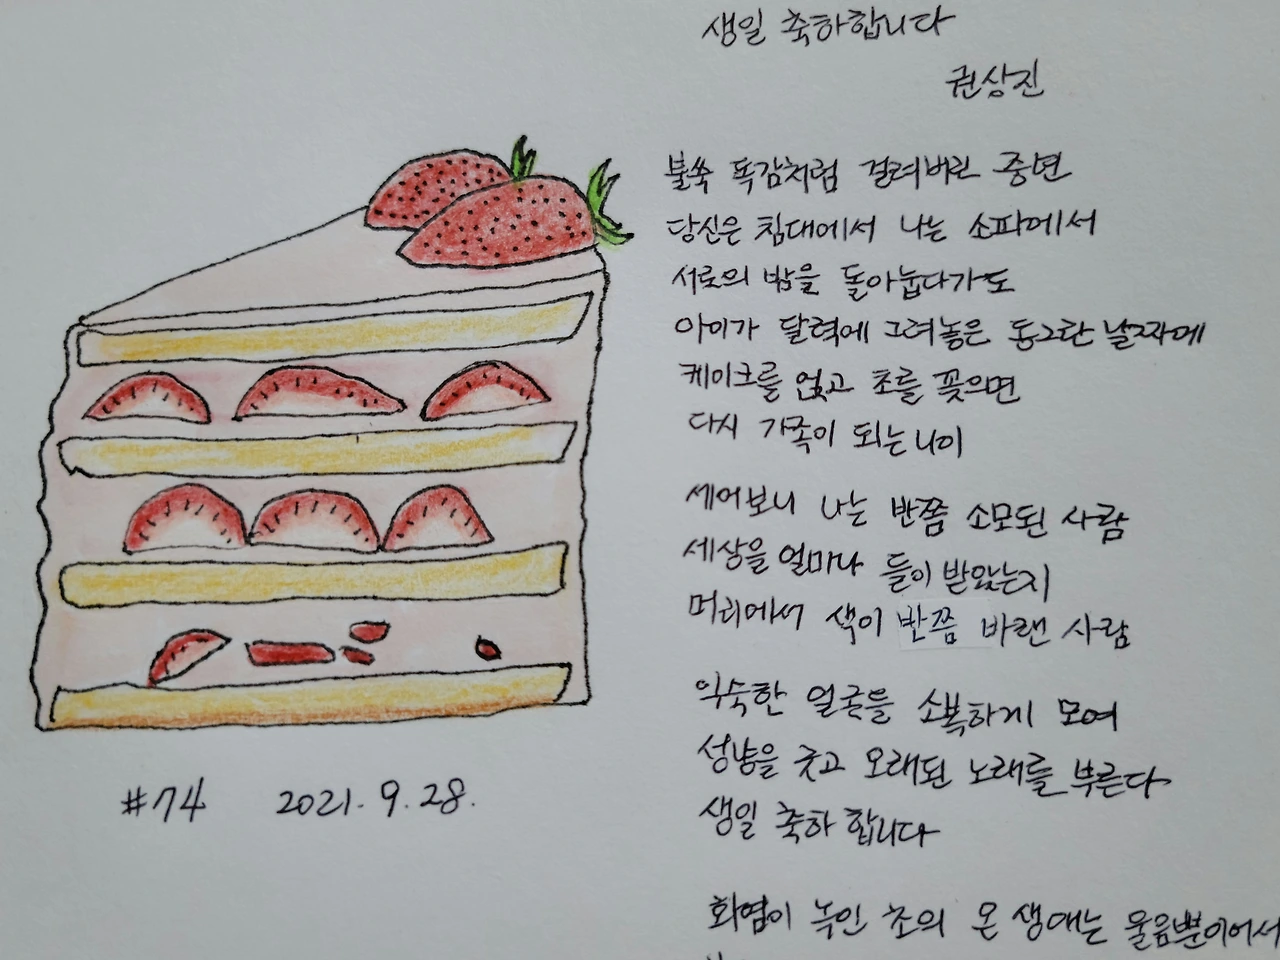 생일 축하합니다
권상진
불쑥 독감처럼 걸려버린 중년
당신은 침대에서 나는 소파에서
서로의 밤을 돌아눕다가도
아이가 달력에 그려놓은 동그란 날짜에
케이크를 얹고 초를 꽂으면
다시 가족이 되는 나이
세어보니 나는 반쯤 소모된 사람
세상을 얼마나 들이받았는지
머리에서 색이 반쯤 바랜 사람
익숙한 얼굴들 소복하게 모여
성냥을 긋고 오래된 노래를 부른다
생일 축하 합니다
화염이 녹인 초의 온 생애는 울음뿐이어서
#74 2021. 9. 28.